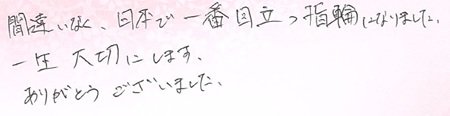 間違いなく、日本で一番目立つ指輪になりました。
一生大切にします。
ありがとうございました。